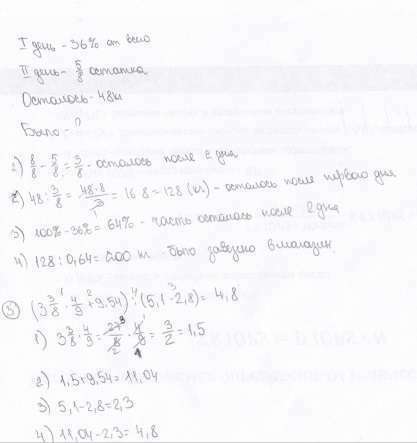 I день - 36% от всего
II день - 5/8 остатка
Осталось - 48 кг
Было - ?
1) 8/8 - 5/8 = 3/8 - осталось после 2 дня
2) 48 : 3/8 = 48·8/3 = 16·8 = 128 (кг) - осталось после первого дня
3) 100% - 36% = 64% - часть осталось после 2 дня
4) 128 : 0,64 = 200 кг было завезено в магазин.
③ (3 3/8 · 4/9 + 9,54) : (5,1 - 2,8) = 4,8
1) 3 3/8 · 4/9 = 27/8 · 4/9 = 3/2 = 1,5
2) 1,5 + 9,54 = 11,04
3) 5,1 - 2,8 = 2,3
4) 11,04 : 2,3 = 4,8